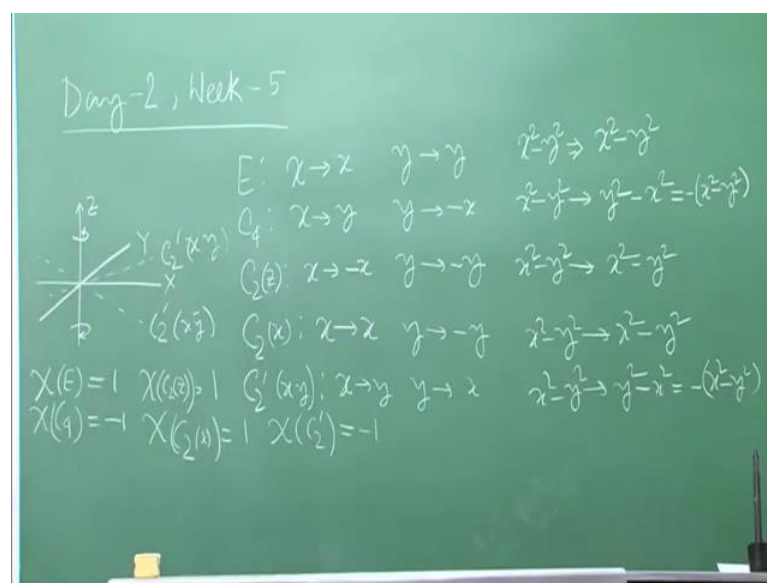 Day-2, Week-5
E: x→x y→y x²-y² → x²-y²
C₄: x→y y→-x x²-y² → y²-x² = -(x²-y²)
C₂(z): x→-x y→-y x²-y² → x²-y²
C₂(x): x→x y→-y x²-y² → x²-y²
C₂'(xy): x→y y→x x²-y² → y²-x² = -(x²-y²)
Z
Y C₂'(xy)
X
C₂'(xȳ)
χ(E)=1 χ(C₂(z))=1
χ(C₄)=-1 χ(C₂(x))=1 χ(C₂')=-1